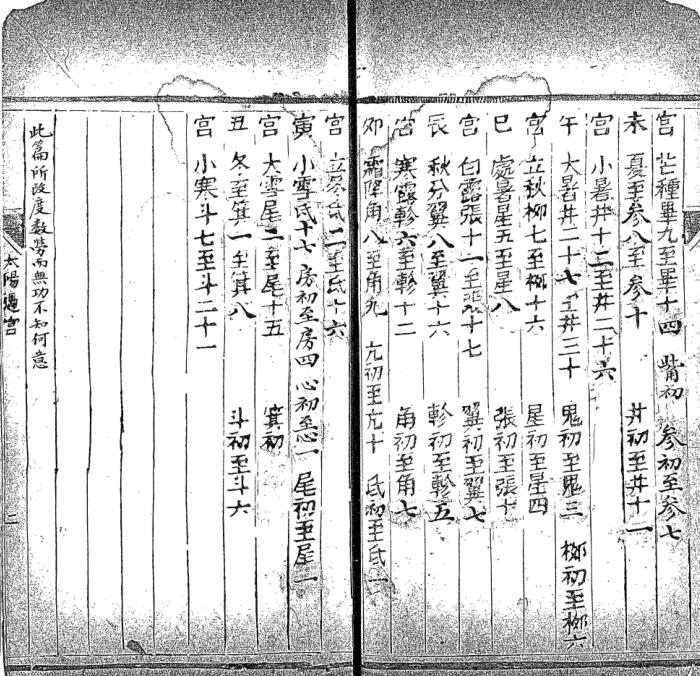 宫 芒種畢九至畢十四 觜初 参初至参七
未 夏至参八至参十 井初至井十一
宫 小暑井十二至井二十六
午 大暑井二十七至井三十 鬼初至鬼三 柳初至柳六
宫 立秋柳七至柳十六 星初至星四
巳 處暑星五至星八 張初至張十
宫 白露張十一至張十七 翼初至翼七
辰 秋分翼八至翼十六 軫初至軫五
宫 寒露軫六至軫十二 角初至角七
卯 霜降角八至角九 亢初至亢十 氐初至氐一
宫 立冬氐二至氐十六
寅 小雪氐十七 房初至房四 心初至心一 尾初至尾一
宫 大雪尾二至尾十五 箕初
丑 冬至箕一至箕八 斗初至斗六
宫 小寒斗七至斗二十一
此篇所改度数勞而無功不知何意
太陽過宫
二